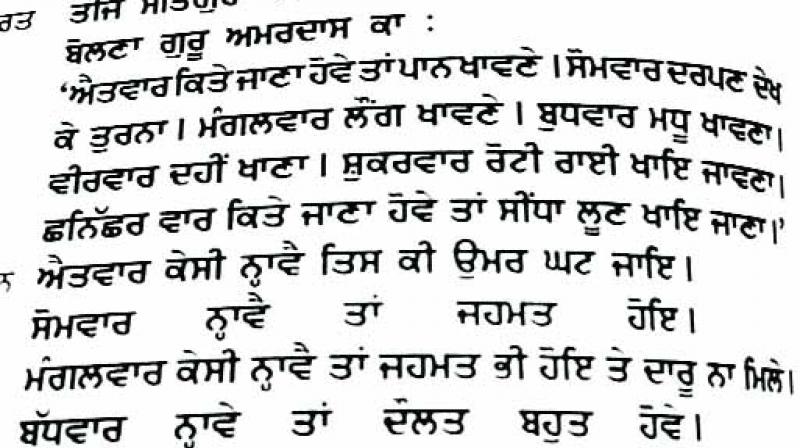 ਰਤ ਤਜਿ ਸਤਿਗੁਰ
ਬੋਲਣਾ ਗੁਰੂ ਅਮਰਦਾਸ ਕਾ :
'ਐਤਵਾਰ ਕਿਤੇ ਜਾਣਾ ਹੋਵੇ ਤਾਂ ਪਾਨ ਖਾਵਣੇ । ਸੋਮਵਾਰ ਦਰਪਣ ਦੇਖ
ਕੇ ਤੁਰਨਾ । ਮੰਗਲਵਾਰ ਲੌਂਗ ਖਾਵਣੇ । ਬੁਧਵਾਰ ਮਧੂ ਖਾਵਣਾ ।
ਵੀਰਵਾਰ ਦਹੀਂ ਖਾਣਾ । ਸ਼ੁਕਰਵਾਰ ਰੋਟੀ ਰਾਈ ਖਾਇ ਜਾਵਣਾ ।
ਛਨਿੱਛਰ ਵਾਰ ਕਿਤੇ ਜਾਣਾ ਹੋਵੇ ਤਾਂ ਸੀਂਧਾ ਲੂਣ ਖਾਇ ਜਾਣਾ ।'
ਨ ਐਤਵਾਰ ਕੇਸੀ ਨ੍ਹਾਵੈ ਤਿਸ ਕੀ ਉਮਰ ਘਟ ਜਾਇ ।
ਸੋਮਵਾਰ ਨ੍ਹਾਵੈ ਤਾਂ ਜਹਮਤ ਹੋਇ ।
ਮੰਗਲਵਾਰ ਕੇਸੀ ਨ੍ਹਾਵੈ ਤਾਂ ਜਹਮਤ ਭੀ ਹੋਇ ਤੇ ਦਾਰੂ ਨਾ ਮਿਲੇ ।
ਬੱਧਵਾਰ ਨ੍ਹਾਵੇ ਤਾਂ ਦੌਲਤ ਬਹੁਤ ਹੋਵੇ ।